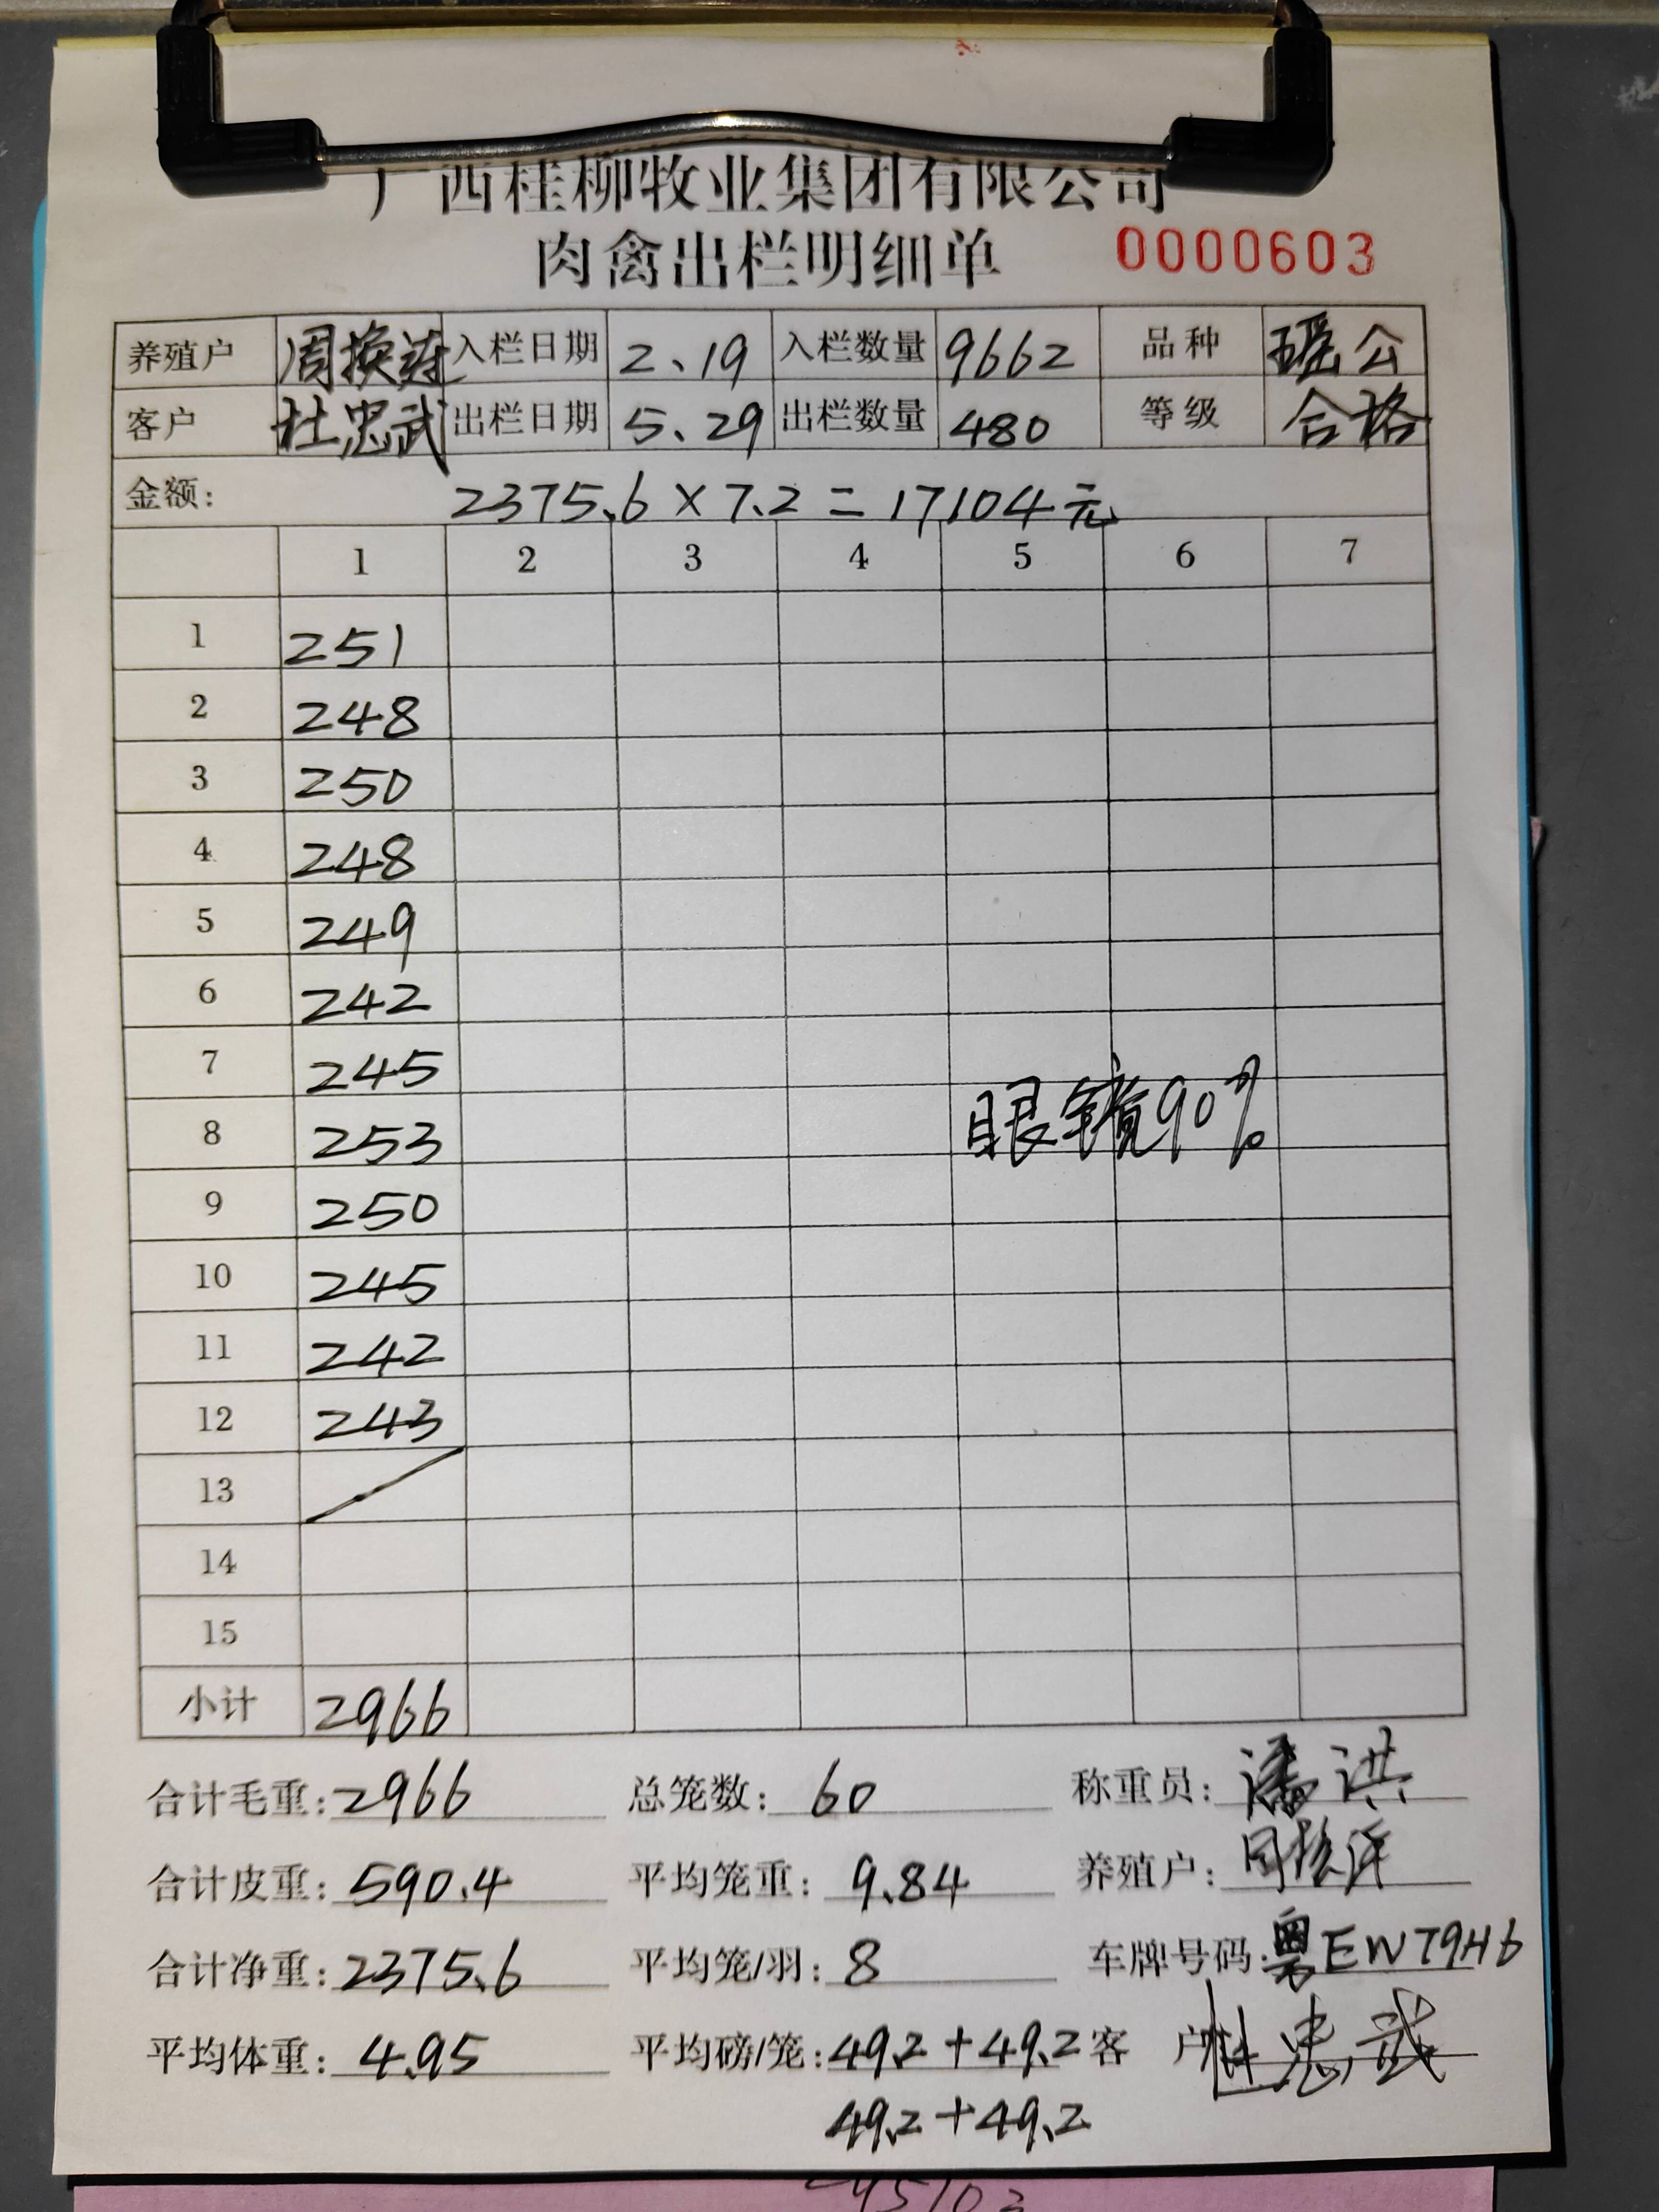 广西桂柳牧业集团有限公司
肉禽出栏明细单 0000603
养殖户 周换连 入栏日期 2、19 入栏数量 9662 品种 瑶公
客户 杜忠武 出栏日期 5、29 出栏数量 480 等级 合格
金额: 2375.6×7.2=17104元
1 2 3 4 5 6 7
1 251
2 248
3 250
4 248
5 249
6 242
7 245
8 253 眼镜90%
9 250
10 245
11 242
12 243
13
14
15
小计 2966
合计毛重: 2966 总笼数: 60 称重员: 潘洪
合计皮重: 590.4 平均笼重: 9.84 养殖户:
合计净重: 2375.6 平均笼/羽: 8 车牌号码: 粤EWT9H6
平均体重: 4.95 平均磅/笼: 49.2+49.2 客户 杜忠武
49.2+49.2